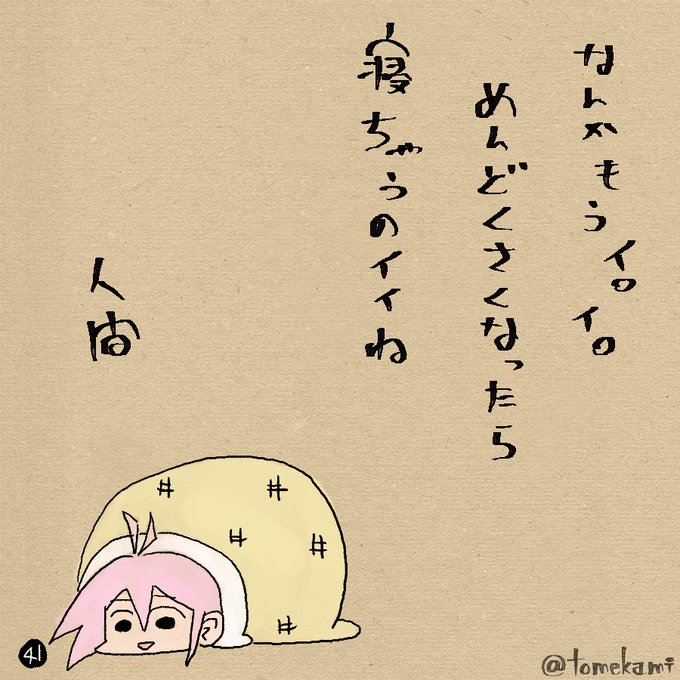 なんかもうイロイロ
めんどくさくなったら
寝ちゃうのイイね
人間
41
@tomekami